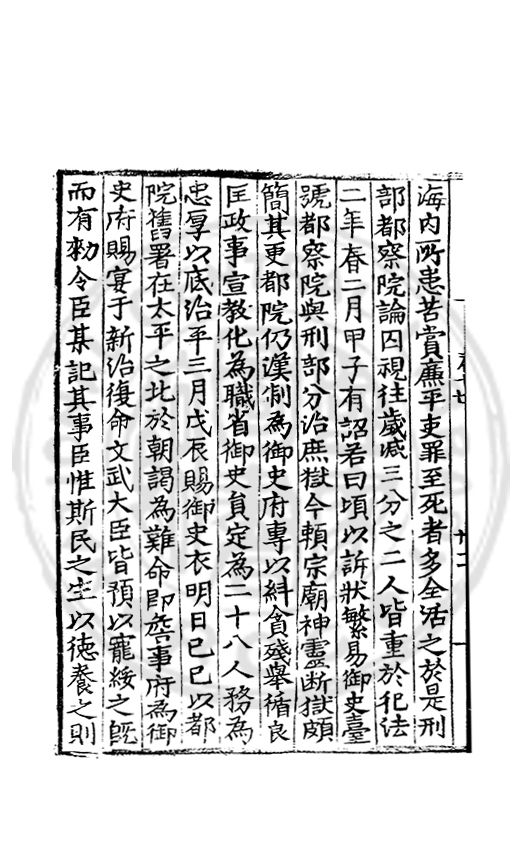 海内所患苦賞廉平吏罪至死者多全活之於是刑
部都察院論囚視往歲減三分之二人皆重於犯法
二年春二月甲子有詔若曰頃以訴狀繁易御史臺
號都察院與刑部分治庶獄今賴宗廟神靈斷獄頗
簡其更都院仍漢制為御史府專以糾貪殘舉循良
匡政事宣教化為職省御史員定為二十八人務為
忠厚以底治平三月戊辰賜御史衣明日己巳以都
院舊署在太平之北於朝謁為難命即詹事府為御
史府賜宴于新治復命文武大臣皆預以寵綏之既
而有勑令臣某記其事臣惟斯民之生以德養之則